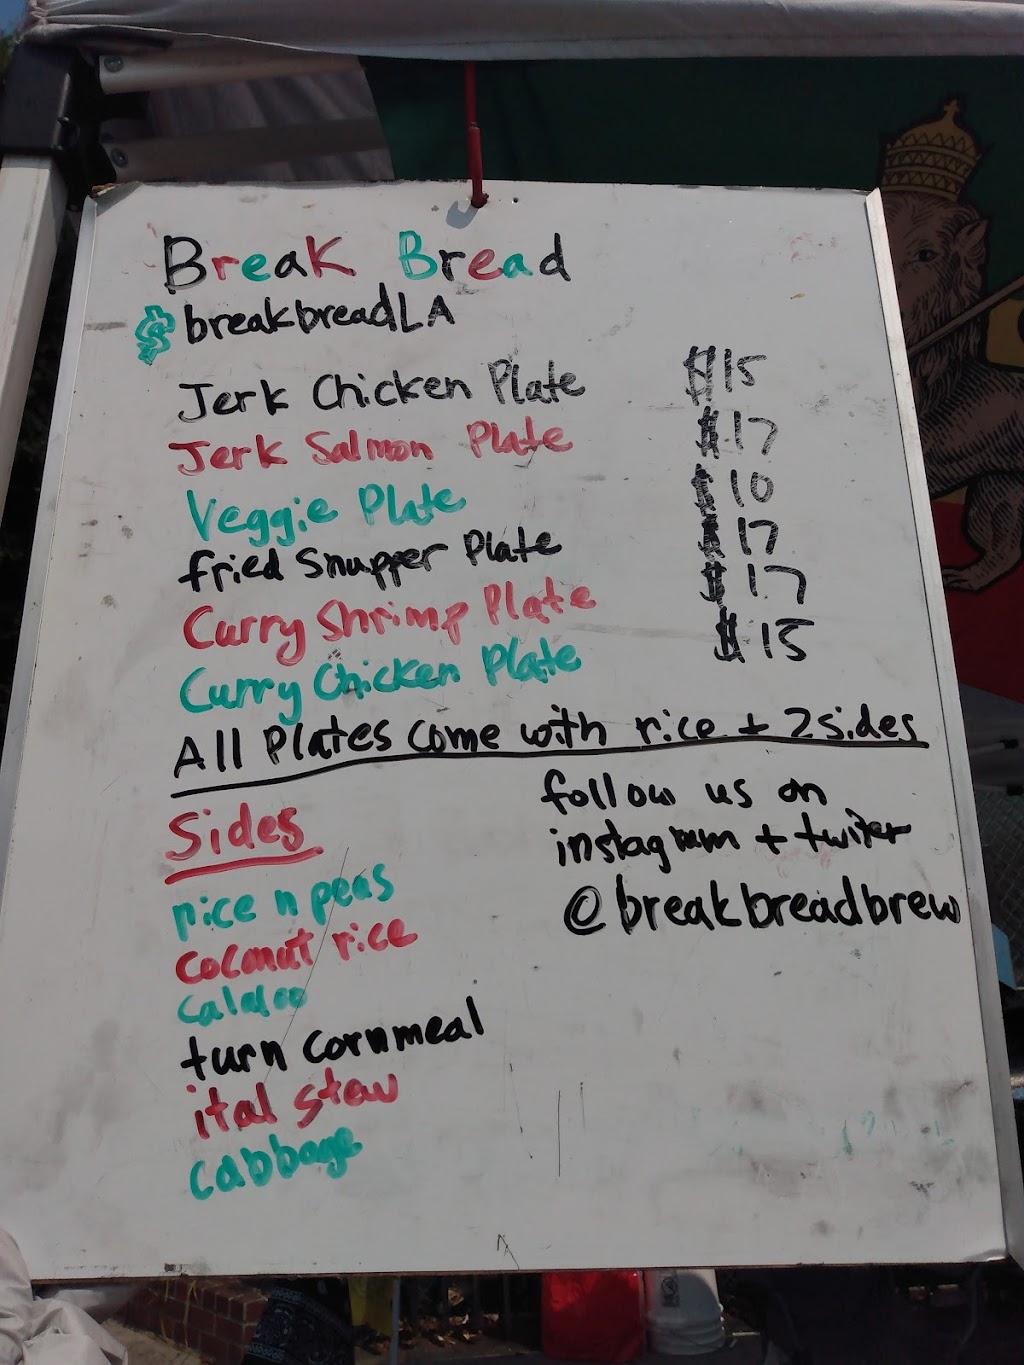 Break Bread
$ breakbreadLA
Jerk Chicken Plate $15
Jerk Salmon Plate $17
Veggie Plate $10
fried Snapper Plate $17
Curry Shrimp Plate $17
Curry Chicken Plate $15
All Plates come with rice + 2 sides
Sides
rice n peas
coconut rice
calaloo
turn cornmeal
ital stew
cabbage
follow us on
instagram + twiter
@breakbreadbrew